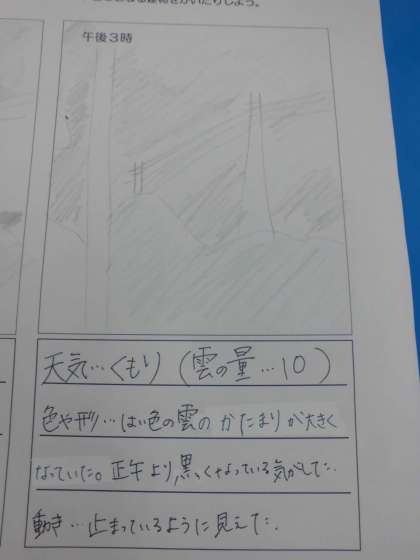 午後3時
天気…くもり（雲の量…10）
色や形…はい色の雲のかたまりが大きく
なっていた。正午より黒っぽくなっている気がした。
動き…止まっているように見えた。